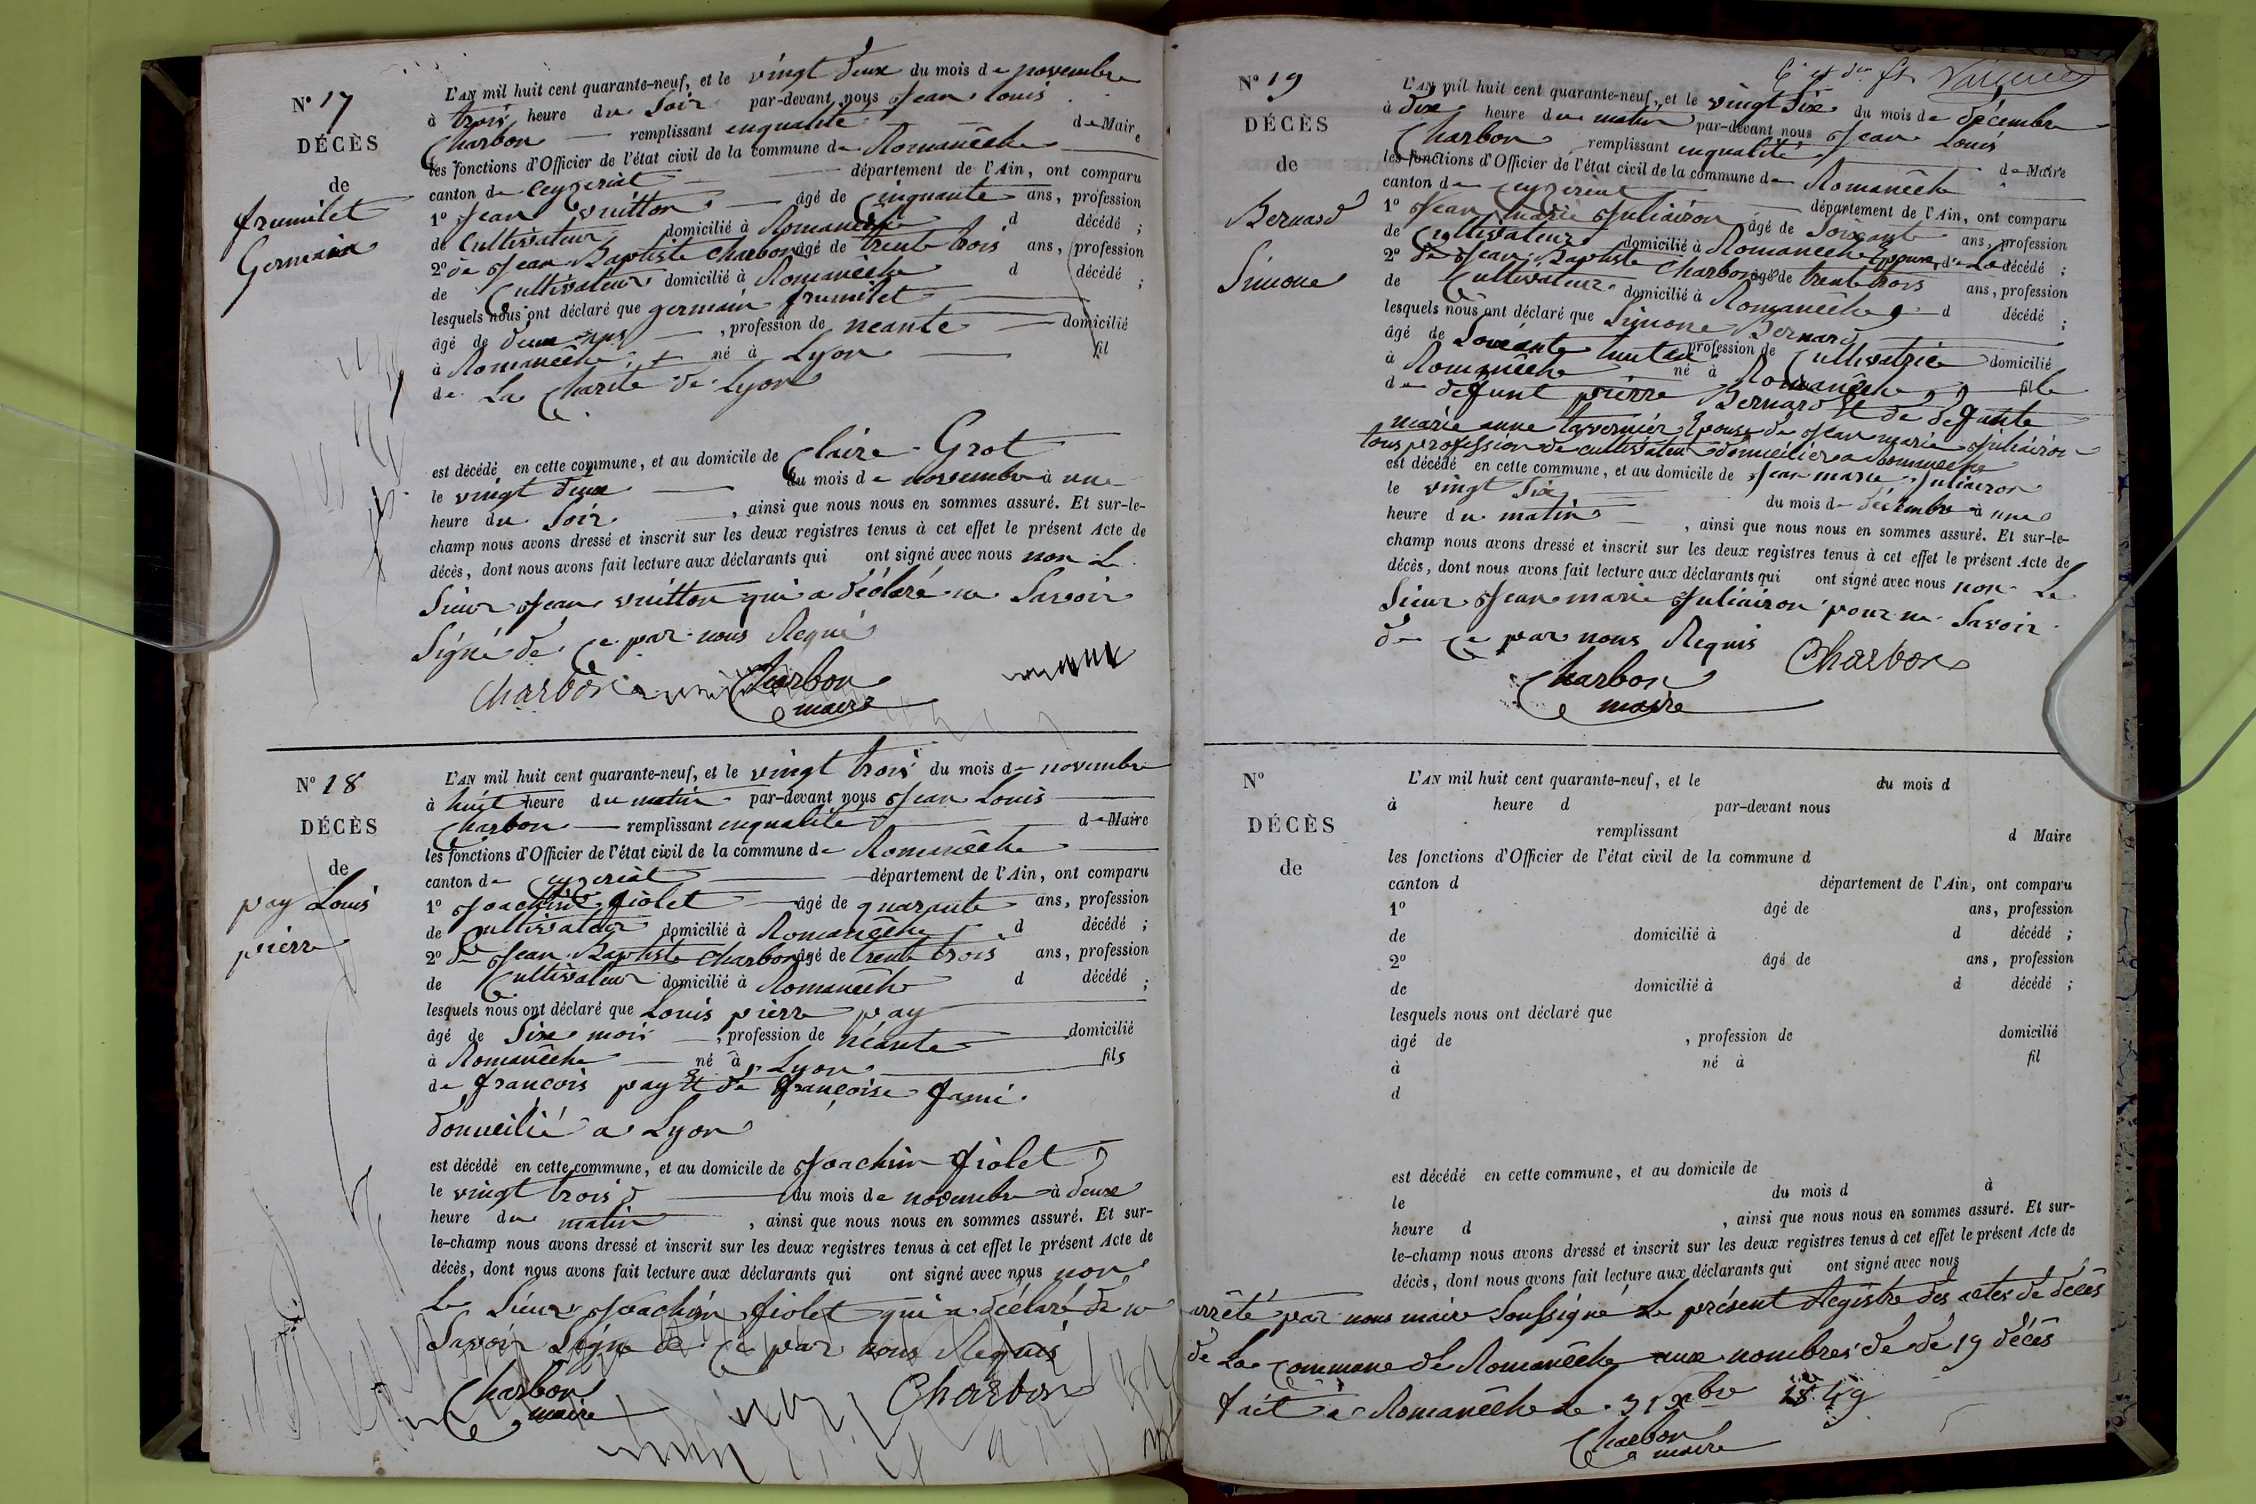 N° 17
DÉCÈS
de
frumilet
Germain
L'AN mil huit cent quarante-neuf, et le vingt deux du mois de novembre
à trois heure du Soir par-devant nous Jean Louis
Charbon remplissant enqualité de Maire
les fonctions d'Officier de l'état civil de la commune de Romanêche
canton de Ceyzeriat département de l'Ain, ont comparu
1° Jean vuitton âgé de Cinquante ans, profession
de Cultivateur domicilié à Romanêche d décédé ;
2° de Jean Baptiste Charbon âgé de trente trois ans, profession
de Cultivateur domicilié à Romanêche d décédé ;
lesquels nous ont déclaré que germain frumilet
âgé de deux ans , profession de neante domicilié
à Romanêche né à Lyon fil
de La Charité de Lyon
est décédé en cette commune, et au domicile de Claire Grot
le vingt deux du mois de novembre à une
heure du Soir , ainsi que nous nous en sommes assuré. Et sur-le-
champ nous avons dressé et inscrit sur les deux registres tenus à cet effet le présent Acte de
décès, dont nous avons fait lecture aux déclarants qui ont signé avec nous non Le
Sieur Jean vuitton qui a déclaré ne Savoir
Signé de Ce par nous Requi
Charbon Charbon
maire
N° 18
DÉCÈS
de
pay Louis
pierre
L'AN mil huit cent quarante-neuf, et le vingt trois du mois de novembre
à huit heure du matin par-devant nous Jean Louis
Charbon remplissant enqualité de Maire
les fonctions d'Officier de l'état civil de la commune de Romanêche
canton de Ceyzeriat département de l'Ain, ont comparu
1° Joachim fiolet âgé de quarante ans, profession
de Cultivateur domicilié à Romanêche d décédé ;
2° de Jean Baptiste Charbon âgé de trente trois ans, profession
de Cultivateur domicilié à Romanêche d décédé ;
lesquels nous ont déclaré que Louis pierre pay
âgé de Six mois , profession de néante domicilié
à Romanêche né à Lyon fils
de françois pay Et de françoise fami
domicilié a Lyon
est décédé en cette commune, et au domicile de Joachim fiolet
le vingt trois du mois de novembre à deux
heure du matin , ainsi que nous nous en sommes assuré. Et sur-
le-champ nous avons dressé et inscrit sur les deux registres tenus à cet effet le présent Acte de
décès, dont nous avons fait lecture aux déclarants qui ont signé avec nous non
Le Sieur Joachim fiolet qui a déclaré de ne
Savoir Signe de Ce par nous Requis
Charbon Charbon
maire
N° 19
DÉCÈS
de
Bernard
Simone
L'AN mil huit cent quarante-neuf, et le vingt Six du mois de décembre
à dix heure du matin par-devant nous Jean Louis
Charbon remplissant enqualité de Maire
les fonctions d'Officier de l'état civil de la commune de Romanêche
canton de Ceyzeriat département de l'Ain, ont comparu
1° Jean marie Juliairon âgé de Soixante ans, profession
de Cultivateur domicilié à Romanêche Epoux de La décédé ;
2° de Jean Baptiste Charbon âgé de trente trois ans, profession
de Cultivateur domicilié à Romanêche d décédé ;
lesquels nous ont déclaré que Simone Bernard
âgé de Soixante huit an profession de Cultivatrice domicilié
à Romanêche né à Romanêche file
de defunt pierre Bernard Et de defunte
marie anne tavernier Epouse de Jean marie Juliairon
tous profession de cultivateur domicilier a Romanêche
est décédé en cette commune, et au domicile de Jean marie Juliairon
le vingt Six du mois de décembre à une
heure du matin , ainsi que nous nous en sommes assuré. Et sur-le-
champ nous avons dressé et inscrit sur les deux registres tenus à cet effet le présent Acte de
décès, dont nous avons fait lecture aux déclarants qui ont signé avec nous non Le
Sieur Jean marie Juliairon pour ne Savoir
de Ce par nous Requis
Charbon Charbon
maire
N°
DÉCÈS
de
L'AN mil huit cent quarante-neuf, et le du mois d
à heure d par-devant nous
remplissant d Maire
les fonctions d'Officier de l'état civil de la commune d
canton d département de l'Ain, ont comparu
1° âgé de ans, profession
de domicilié à d décédé ;
2° âgé de ans, profession
de domicilié à d décédé ;
lesquels nous ont déclaré que
âgé de , profession de domicilié
à né à fil
d
est décédé en cette commune, et au domicile de
le du mois d à
heure d , ainsi que nous nous en sommes assuré. Et sur-
le-champ nous avons dressé et inscrit sur les deux registres tenus à cet effet le présent Acte de
décès, dont nous avons fait lecture aux déclarants qui ont signé avec nous
arrêté par nous maire Soussigné Le présent Registre des actes de décès
de La Commune de Romanêche aux nombres de de 19 décès
fait a Romanêche le 31 Xbre 1849
Charbon
maire